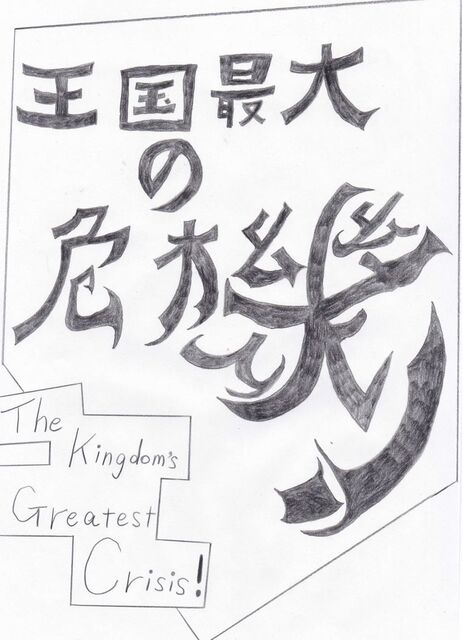 王国最大
の
危機!
The
Kingdom's
Greatest
Crisis!